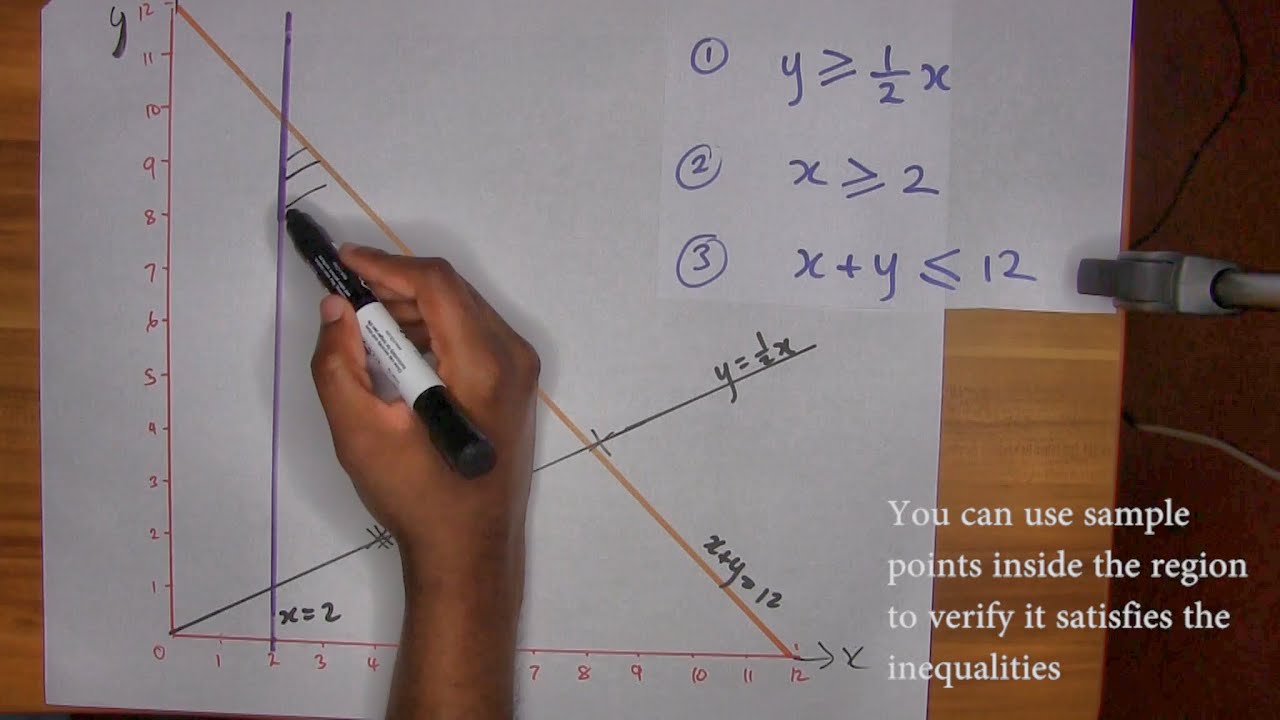 y
12
11
10
9
8
7
6
5
4
3
2
1
0
1
2
3
4
7
8
9
10
11
12
x
① y ≥ 1/2 x
② x ≥ 2
③ x + y ≤ 12
y = 1/2 x
x = 2
x+y=12
You can use sample
points inside the region
to verify it satisfies the
inequalities